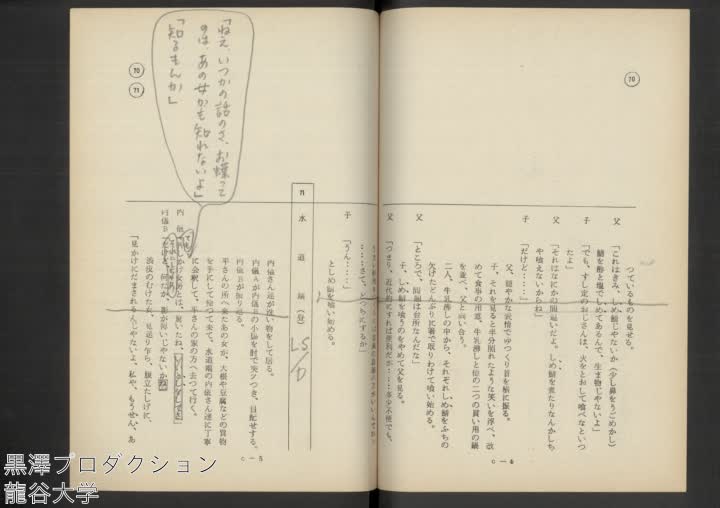 つているものを見せる。
父「これはきみ、しめ鯖じやないか（少し鼻をうごめかし）
鯖を酢と塩でしめてあるんで、生ま物じやないよ」
子「でも、すし定のおじさんは、火をとおして喰べなといつ
たよ」
父「それはなにかの間違いだよ。しめ鯖を煮たりなんかしち
や喰えないからね」
子「だけど……」
父、穏やかな表情でゆつくり首を横に振る。
子、それを見ると半分照れたような笑いを浮べ、改
めて食事の用意、牛乳沸しと他の二つの貰い用の鍋
を並べ、父と向い合う。
二人、牛乳沸しの中から、それぞれしめ鯖をふちの
欠けたどんぶりに箸で取りわけて喰い始める。
父「ところで、問題は台所なんだな」
子、しめ鯖を喰うのをやめて父を見る。
父「つまり、近代的にすれば便利だが……多少不便でも、
……さて、どつちにするか」
子「うん……」
としめ鯖を喰い始める。
70
C－4
71 水道端（昼）
LS
内儀さん達が洗い物をして居る。
内儀Aが内儀Bの小脇を肘で突ツつき、目配せする。
内儀Bが振り返る。
平さんの所へ来たあの女が、大根や豆腐などの買物
を手にして帰つて来て、水道端の内儀さん達に丁寧
に会釈して、平さんの家の方へ去つて行く。
渋皮のむけた女、見送り乍ら、腹立たしげに、
「見かけにだまされるんじやないよ、私や、もうせん、あ
70
71
C－5
「ねえ、いつかの話のさ、お蝶って
のは、あの女かも知れないよ」
「知るもんか」
黒澤プロダクション
龍谷大学